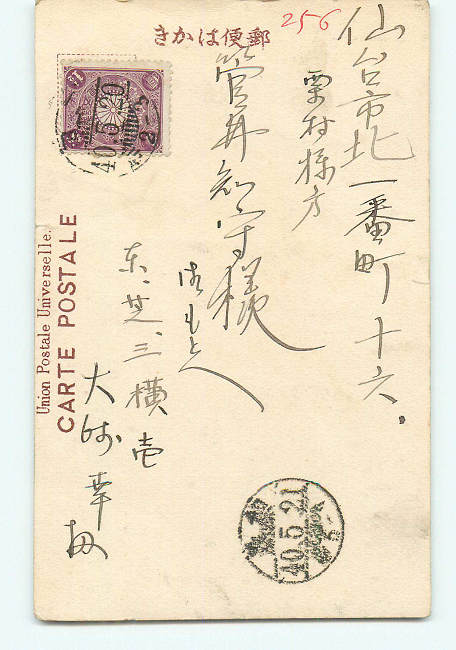 郵便はかき
256
仙台市北一番町十六、
栗村様方
菅井知守様
御もと人
東、芝、三、横壱
大
幸
Union Postale Universelle.
CARTE POSTALE
40.5.20
40.5.21